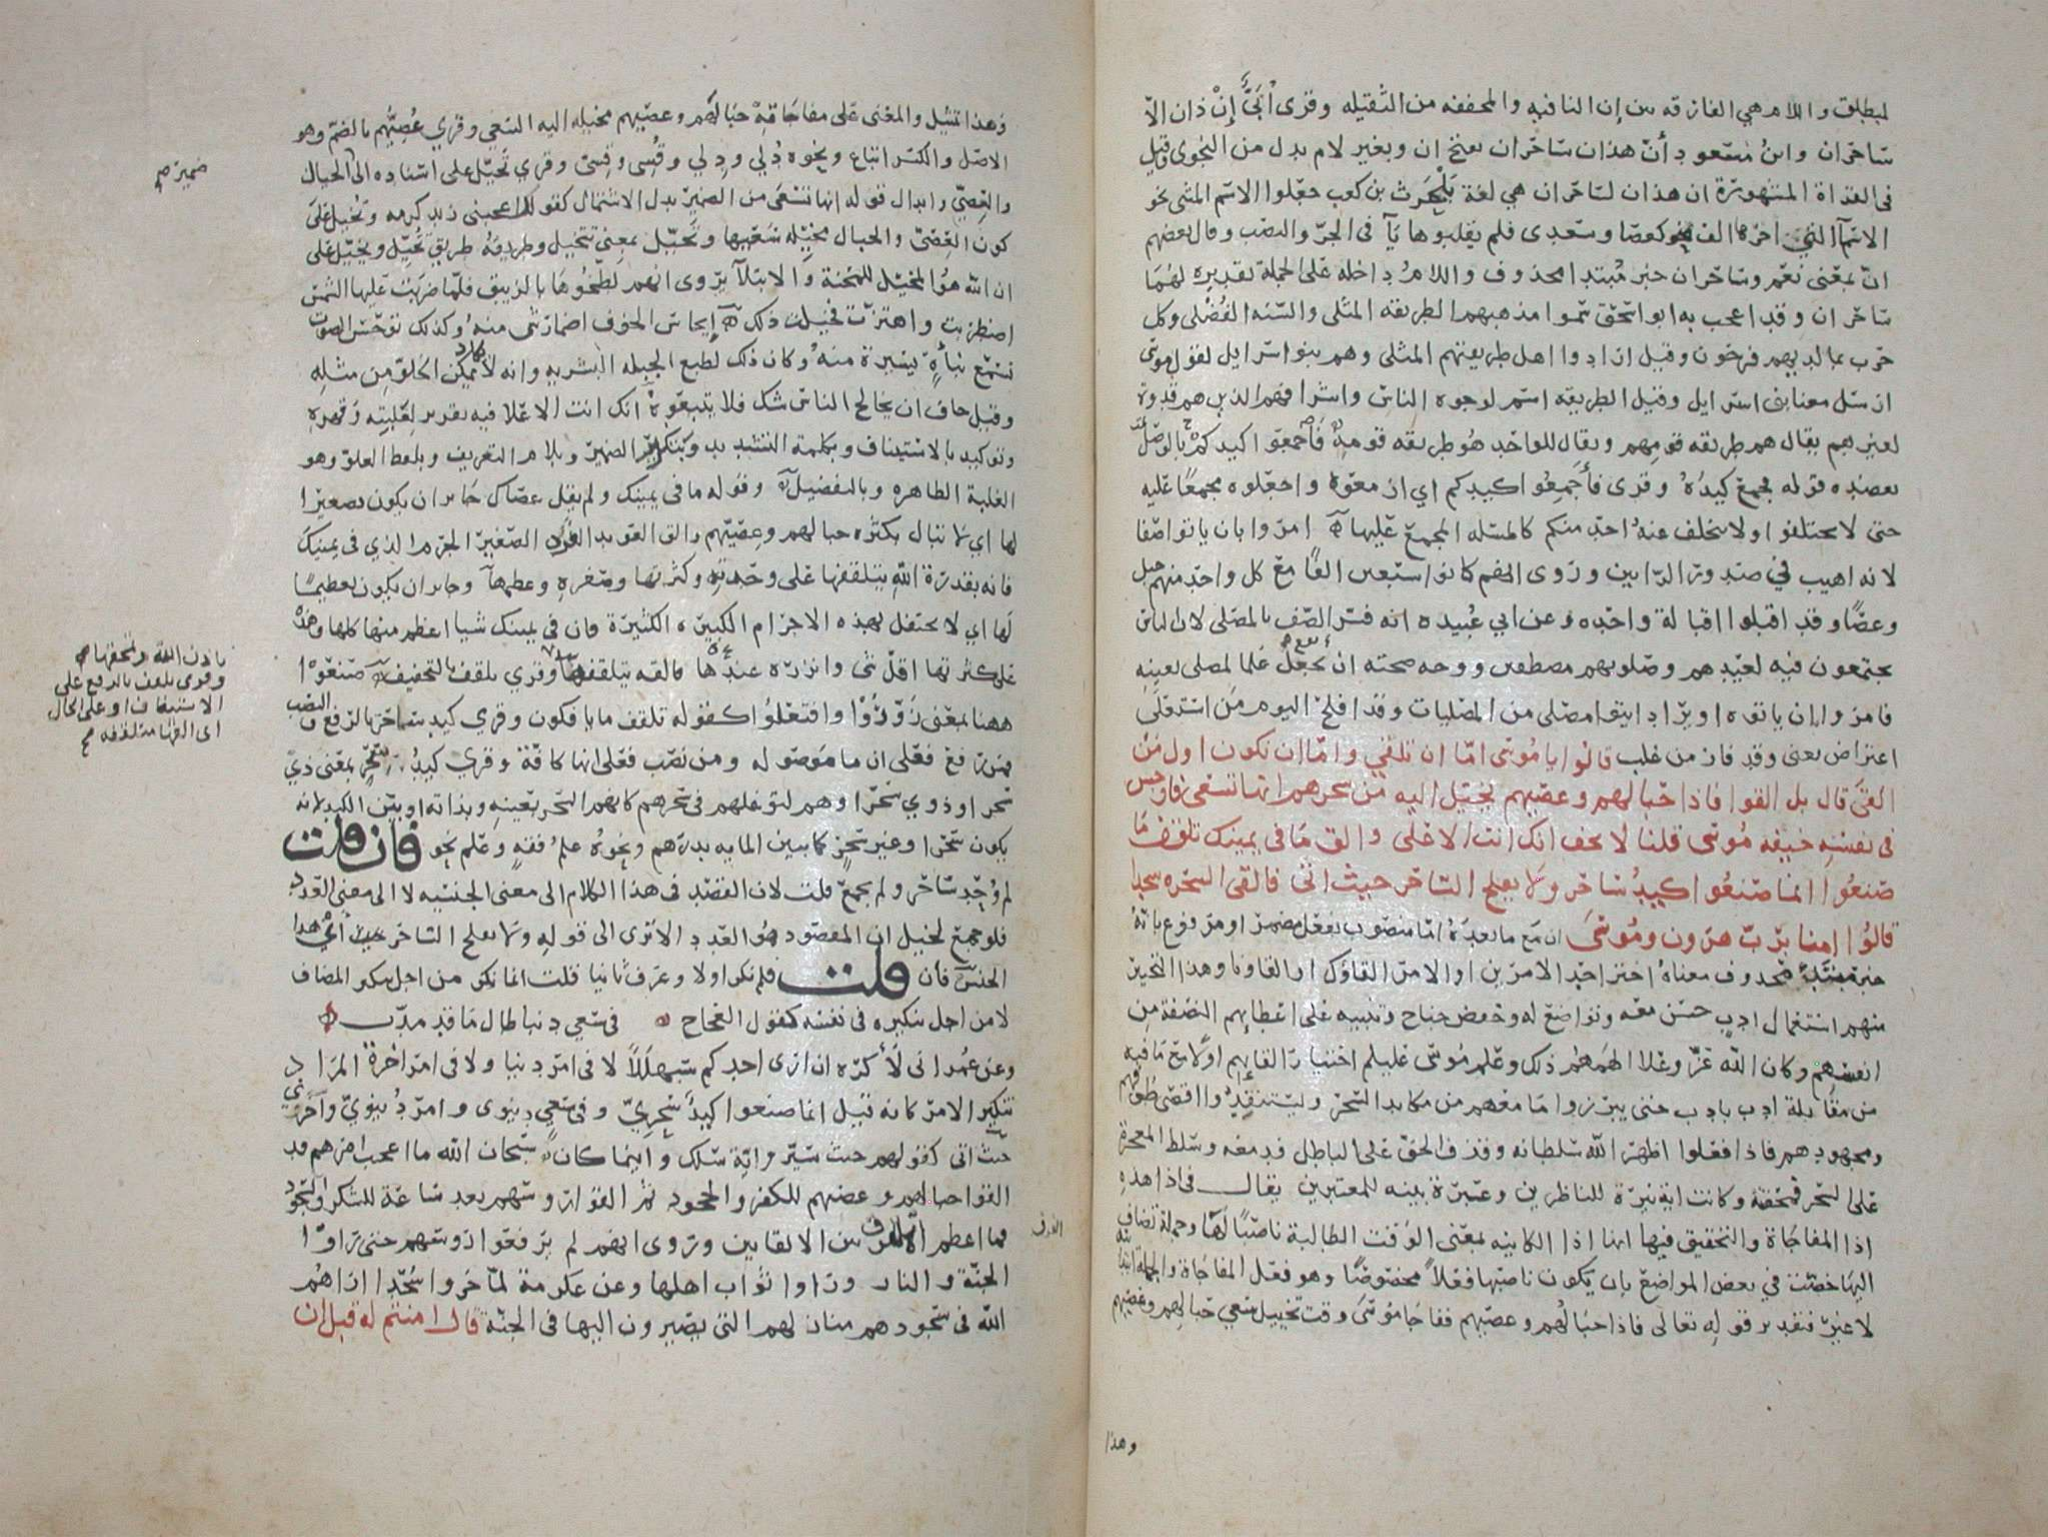 لمبطلق واللام هي الفارقه بين إن النافيه والمخففه من الثقيله وقرى أبيّ إنْ ذان الاّ
ساحران وابن مسعود أنّ هذان ساحران بفتح ان وبغير لام بدل من النجوى وقيل
فى القراة المشهورة ان هذان لساحران هي لغة بلحرث بن كعب جعلوا الاسم المثنى نحو
الاسمآ التى اخرها الف كعصا وسعدى فلم يقلبوها يآ فى الجرّ والنصب وقال بعضهم
انّ بمعنى نعم وساحران خبر مبتدا محذوف واللام داخله على الجملة تقديره لهما
ساحران وقد اعجب به ابو اسحق سموا مذهبهم الطريقه المثلى والسنه الفضلى وكل
حزب بما لديهم فرحون وقيل ارادوا اهل طريقتهم المثلى وهم بنو اسرايل لقول موسى
ارسل معنا بنى اسرايل وقيل الطريقه اسم لوجوه الناس واشرافهم الذين هم قدوة
لغيرهم يقال هم طريقه قومهم ويقال للواحد هو طريقه قومه فأجمعوا كيدكم بالوصل
يعضده قوله فجمع كيده وقرى فأجمعوا كيدكم اي ازمعوه واجعلوه مجمعًا عليه
حتى لا تختلفوا ولا يتخلف عنه احد منكم كالمسله المجمع عليها امروا بان ياتوا صفا
لانه اهيب في صدور الرايين وروى انهم كانوا سبعين الفًا مع كل واحد منهم حبل
وعصًا وقد اقبلوا اقبالة واحده وعن ابي عبيده انه فسر الصف بالمصلى لان الناس
يجتمعون فيه لعيدهم وصلوتهم مصطفين ووجه صحته ان يجعل علما لمصلى بعينه
فامروا بان ياتوه او يراد ايتوا مصلى من المصليات وقد افلح اليوم من استعلى
اعتراض يعنى وقد فاز من غلب قالوا يا موسى امّا ان تلقي وامّا ان نكون اول من
القى قال بل القوا فاذا حبالهم وعصيهم يخيل اليه من سحرهم انها تسعى فاوجس
فى نفسه خيفه موسى قلنا لا تخف انك انت الاعلى والق ما في يمينك تلقف ما
صنعوا انما صنعوا كيد ساحر ولا يفلح الساحر حيث اتى فالقى السحره سجدا
قالوا امنا بربّ هرون وموسى ان مع ما بعده امّا منصوب بفعل مضمر او مرفوع بانه
خبر مبتدا محذوف معناه اختر احد الامرين او الامر القاؤك او القاونا وهذا التخيير
منهم استعمال ادبٍ حسن معه وتواضع له وخفض جناح وتنبيه على اعطايهم النصفة من
انفسهم وكان الله عزّ وعلا الهمهم ذلك وعلم موسى عليلم اختيار القايهم اولا مع ما فيه
من مقابلة ادب بادب حتى يبرزوا ما معهم من مكايد السحر ويستنفدوا اقصى طوقهم
ومجهودهم فاذا فعلوا اظهر الله سلطانه وقذف بالحق على الباطل فدمغه وسلط المعجزة
على السحر فمحقته وكانت اية نيرة للناظرين وعبرة بينه للمعتبرين يقال فى اذا هذه
اذا المفاجاة والتحقيق فيها انها اذا الكاينه بمعنى الوقت الطالبة ناصبًا لها وجملة تضاف
اليها خصت في بعض المواضع بان يكون ناصبها فعلاً مخصوصًا وهو فعل المفاجاة والجملة ابتدائية
لا غير فتقدير قوله تعالى فاذا حبالهم وعصيهم ففاجا موسى وقت تخييل سعي حبالهم وعصيهم
وهذا
وهذا تمثيل والمعنى على مفاجاته حبالهم وعصيهم مخيلة اليه السعي وقري عُصيّهم بالضم وهو
الاصل والكسر اتباع ونحوه دُلي ودِلي وقُسي وقِسى وقري تخيل على اسناده الى الحبال
والعصيّ وابدال قوله انها تسعى من الضمير بدل الاشتمال كقولك اعجبنى زيد كرمه وتُخيل على
كون العصيّ والحبال مخيّله سعيها وتخيّل بمعنى تتخيل وطريقه طريق تُخيّل ويخيّل على
ان الله هو المخيّل للمحنة والابتلآ يروى انهم لطخوها بالزيبق فلمّا ضربت عليها الشمس
اضطربت واهتزت فخيلت ذلك إيجاس الخوف اضمار شى منه وكذلك توجّس الصوت
تسمع نبأةٍ يسيرة منه وكان ذلك لطبع الجبله البشريه وانه لا يكاد يمكن الخلو من مثله
وقيل خاف ان يخالج الناس شك فلا يتبعوه انك انت الاعلا فيه تقرير لغلبته وقهره
وتوكيد بالاستيناف وبكلمة التشديد وبتكرير الضمير وبلام التعريف وبلفظ العلو وهو
الغلبة الظاهره وبالتفضيل وقوله ما فى يمينك ولم يقل عصاك جايز ان يكون تصغيرا
لها اي لا تبال بكثره حبالهم وعصيّهم والق العويد الفرد الصغير الجرم الذي فى يمينك
فانه بقدرة الله يتلقفها على وحدته وكثرتها وصغره وعظمها وجايز ان يكون تعظيمًا
لها اي لا تحتفل بهذه الاجرام الكبيره الكثيرة فان في يمينك شيا اعظم منها كلها وهذه
على كثرتها اقلّ شى وانزره عندها فالقه يتلقفها وقري تلقف بالتخفيف صنعوا
ههنا بمعنى زوّروا وافتعلوا كقوله تلقف ما يافكون وقري كيد ساحر بالرفع والنصب
فمن رفع فعلى ان ما موصوله ومن نصب فعلى انها كافة وقري كيد سحر بمعنى ذي
سحر او ذوي سحر او هم لتوغلهم فى سحرهم كانهم السحر بعينه وبذاته او بيّن الكيد لانه
يكون سحرا وغير سحرٍ كما تبين المايه بدرهم ونحوه علم فقهٍ وعلم نحو فان قلت
لم وحّد ساحر ولم يجمع قلت لان القصد فى هذا الكلام الى معنى الجنسيه لا الى معنى العدد
فلو جمع لخيل ان المقصود هو العدد الا ترى الى قوله ولا يفلح الساحر حيث اتى اي هذا
الجنس فان قلت فلم نكر اولا وعرف ثانيا قلت انما نكر من اجل تنكير المضاف
لا من اجل تنكيره فى نفسه كقول العجاج في سعي دنيا طال ما قد مدّت
وعن عمر انى لأكره ان ارى احدكم سبهللاً لا فى امر دنيا ولا فى امر اخرة المراد
تنكير الامر كانه قيل انما صنعوا كيد سحريّ وفى سعي دنيوى وامر دنيويّ واخري
حيث اتى كقولهم حيث سيّر وايّة سلك واينما كان سبحان الله ما اعجب امرهم قد
القوا حبالهم وعصيهم للكفر والجحود ثم القوا رؤسهم بعد ساعة للشكر والسجود
فما اعظم الفرق بين الالقاين وروى انهم لم يرفعوا رؤسهم حتى راوا
الجنّة والنار وراوا ثواب اهلها وعن عكرمة لمّا خروا سجّدا اراهم
الله فى سجودهم منازلهم التى يصيرون اليها فى الجنّة قال امنتم له قبل ان
ضمير صح
باذن الله ويمحقها
وقري تلقف بالرفع على
الاستيناف او على الحال
اى القها متلقفه صح
الفرق